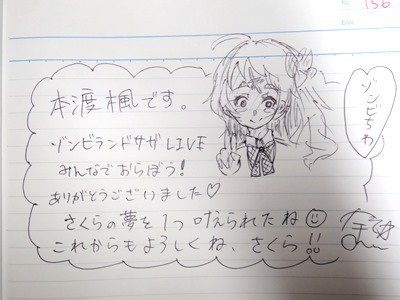 No.
156
Date
本渡楓です。
ゾンビランドサガ LIVE
みんなでおらぼう!
ありがとうございました♡
さくらの夢を1つ叶えられたね☺
これからもよろしくね、さくら!!
ゾンビちわ